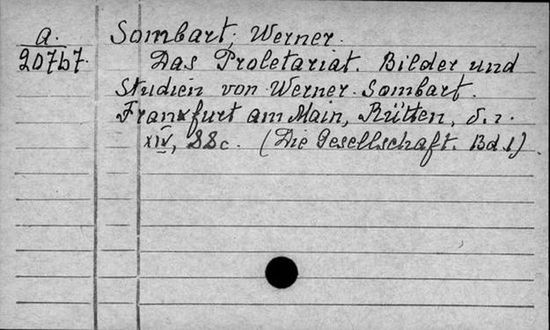 a.
20767.
Sombart, Werner.
Das Proletariat. Bilder und
Studien von Werner Sombart.
Frankfurt am Main, Rütten, s. ı.
XIV, 88 c. (Die Gesellschaft. Bd 1).